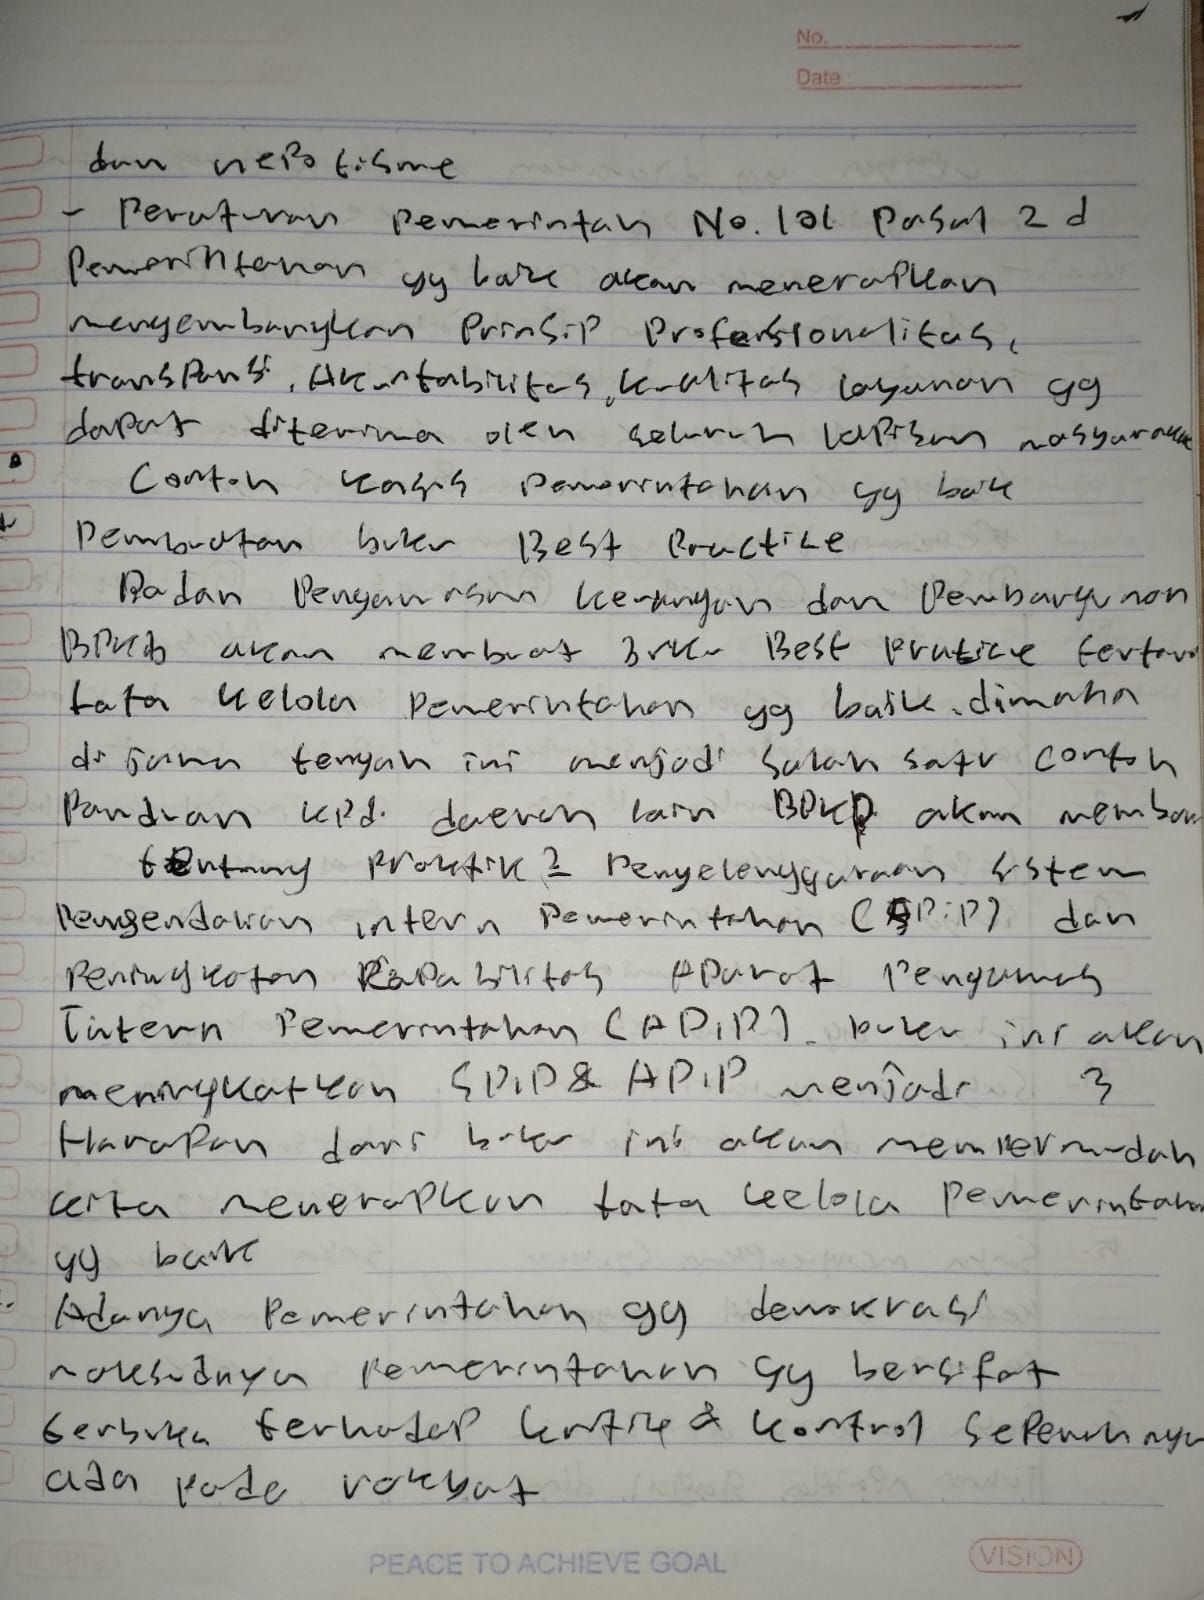 No.
Date :
dan nepotisme
- Peraturan Pemerintah No. 101 Pasal 2 d
Pemerintahan yg baik akan menerapkan
mengembangkan Prinsip Profersionalitas,
transparsi, Akuntabilitas, kualitas layanan yg
dapat diterima oleh seluruh lapisan masyarakat
Contoh kasus pemerintahan yg baik
Pembuatan buku Best Practice
Badan Pengawasan keuangan dan Pembangunan
BPKP akan membuat Buku Best Pratice
tata kelola Pemerintahan yg baik. dimana
di jawa tengah ini menjadi salah satu contoh
Panduan kpd. daerah lain BPKP akan
tentang Praktik 2 Penyelenggaraan sistem
Pengendalian intern Pemerintahan (SPiP) dan
Peningkatan Kapabilitas Aparat Pengawas
Intern Pemerintahan (APiP). buku ini akan
meningkatkan SPiP & APiP menjadi 3
Harapan dari buku ini akan mempermudah
kita menerapkan tata kelola Pemerintahan
yg baik
Adanya Pemerintahan yg demokrasi
maksudnya Pemerintahan yg bersifat
terbuka terhadap kritik & kontrol sepenuhnya
ada pada rakyat
PEACE TO ACHIEVE GOAL
VISION